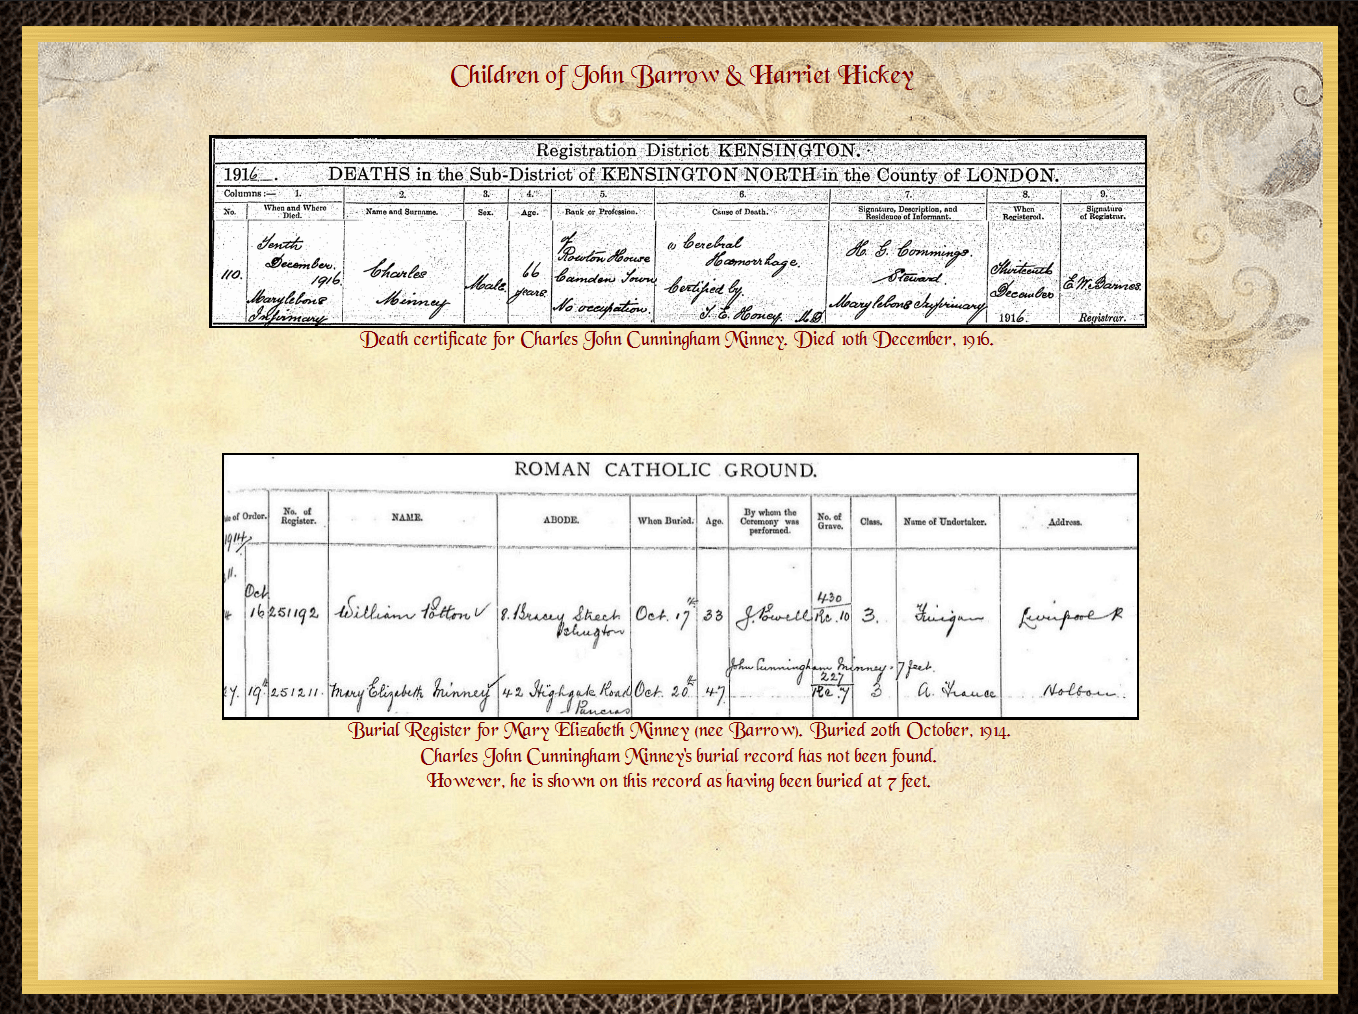 Children of John Barrow & Harriet Hickey
Registration District KENSINGTON.
1916. DEATHS in the Sub-District of KENSINGTON NORTH in the County of LONDON.
Columns:— 1. 2. 3. 4. 5. 6. 7. 8. 9.
No. When and Where Died. Name and Surname. Sex. Age. Rank or Profession. Cause of Death. Signature, Description, and Residence of Informant. When Registered. Signature of Registrar.
110. Tenth December. 1916. Marylebone Infirmary Charles Minney Male 66 years of Rowton House Camden Town No occupation. a Cerebral Hæmorrhage. Certified by J. E. Honey. M D. H. G. Commings. Steward. Marylebone Infirmary Thirteenth December 1916. E. W. Barnes. Registrar.
Death certificate for Charles John Cunningham Minney. Died 10th December, 1916.
ROMAN CATHOLIC GROUND.
of Order. No. of Register. NAME. ABODE. When Buried. Age. By whom the Ceremony was performed. No. of Grave. Class. Name of Undertaker. Address.
1914
Oct 16 251192 William 8. Street Islington Oct. 17th 33 J. Powell 430 Rc. 10 3.
John Cunningham Minney. 7 feet.
19th 251211 Mary Elizabeth Minney 42 Highgate Road Pancras Oct. 20th 47 227 Rc. 7 3 A. France Holborn
Burial Register for Mary Elizabeth Minney (nee Barrow). Buried 20th October, 1914.
Charles John Cunningham Minney's burial record has not been found.
However, he is shown on this record as having been buried at 7 feet.